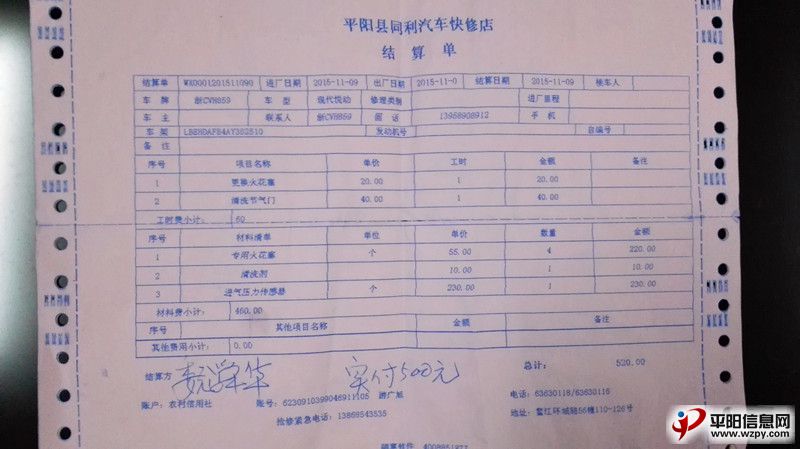 平阳县同利汽车快修店
结 算 单
结算单 WX000120151109​0 进厂日期 2015-11-09 出厂日期 2015-11-0 结算日期 2015-11-09 接车人
车 牌 浙CVH859 车 型 现代悦动 修理类别 进厂里程
车 主 联系人 浙CVH859 电 话 13958908912 手 机
车 架 LBEHDAFB4AY382510 发动机号 自编号
备 注
序号 项目名称 单价 工时 金额 备注
1 更换火花塞 20.00 1 20.00
2 清洗节气门 40.00 1 40.00
工时费小计: 60
序号 材料清单 单位 单价 数量 金额
1 专用火花塞 个 55.00 4 220.00
2 清洗剂 10.00 1 10.00
3 进气压力传感器 个 230.00 1 230.00
材料费小计: 460.00
序号 其他项目名称 金额 备注
其他费用小计: 0.00
结算方 实付500元 总计: 520.00
账户: 农村信用社 账号: 6230910399046911105 游广旭 电话: 63630118/63630116
抢修紧急电话: 13868543535 地址: 鳌江环城路56幢110-126号
平阳信息网
www.wzpy.com